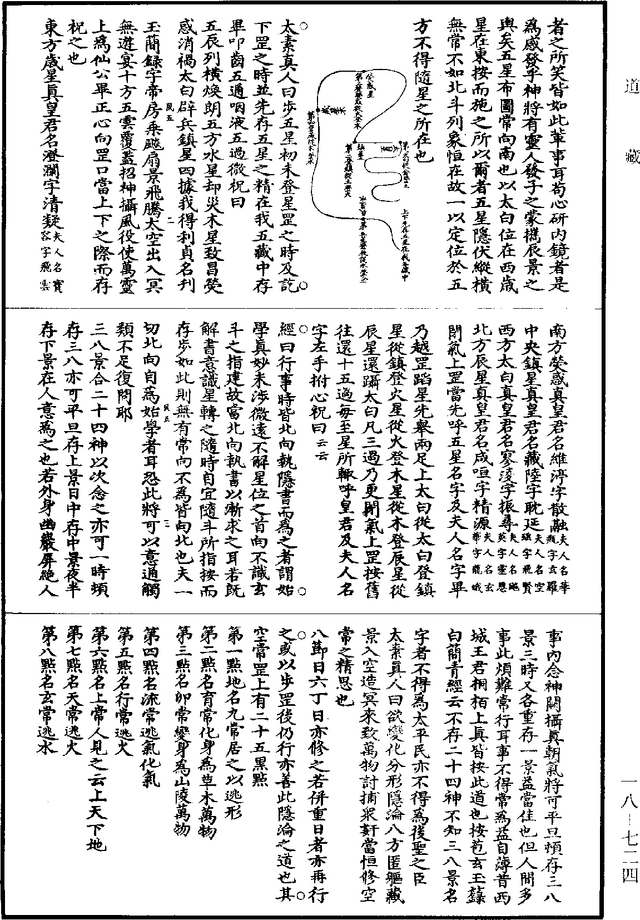 道藏
者之所笑皆如此革事耳苟心研內鏡者是
為感發乎神將有靈人發子之蒙攜辰景之
輿矣五星布圖常向南也以太白位在西歲
星在東按而施之所以爾者五星隱伏縱橫
無常不如北斗列象恒在故一以定位於五
方不得隨星之所在也
太素真人曰步五星初未登星罡之時及訖
下罡之時並先存五星之精在我五藏中存
畢叩齒五通咽液五過微祝曰
五辰列橫煥朗五方水星却災木星致昌熒
惑消禍太白辟兵鎮星四據我得利貞名刋
玉簡錄字帝房乘飈扇景飛騰太空出入冥
無遊宴十方五雲覆蓋招神攝風役使萬靈
上為仙公畢正心向罡口當上下之際而存
祝之也
東方歲星真皇君名澄瀾字清凝夫人名寶容字飛雲
南方熒惑真皇君名維淳字散融夫人名華瓶字玄羅
中央鎮星真皇君名藏陸字耽延夫人名空瑤字飛賢
西方太白真皇君名寥凌字振尋夫人名飈英字靈恩
北方辰星真皇君名咺字精源夫人名玄華字龍娥
閉氣上罡當先呼五星名字及夫人名字畢
乃越罡蹈星先舉兩足上太白從太白登鎮
星從鎮登火星從火登木星從木登辰星從
辰星還躡太白凡三過乃更閉氣上罡按舊
往還十五過每至星所輙呼皇君及夫人名
字左手拊心祝曰云云
經曰行事時皆北向執隱書而為之者謂始
學真妙未涉微遠不解星位之首向不識玄
斗之指建故當北向執書以漸求之耳若既
解書意識星轉之隨時自宜隨斗所指按而
存步如此則無有常向不為皆向北也夫一
切北向自為始學者耳忽此將可以意通觸
類不足復問耶
三八景合二十四神以次念之亦可一時頻
存三八亦可平旦存上景日中存中景夜半
存下景在人意為之也若外身幽巖屏絕人
事內念神關攝真朝氣將可平旦頻存三八
景三時又各重存一景益當佳也但人間多
事此煩難常行耳事不得常為益自薄昔西
城王君桐栢上真皆按此道也按苞玄玉籙
白簡青經云不存二十四神不知三八景名
字者不得為太平民亦不得為後聖之臣
太素真人曰欲變化分形隱淪八方匿軀藏
景入空造冥來致萬物討捕眾姧當恒修空
常之精思也
八節日六丁日亦修之若併重日者亦再行
之或以步罡後仍行亦善此隱淪之道也其
空常罡上有二十五黑點
第一點地名九常居之以逃形
第二點名育常化身為草木萬物
第三點名卯常變身為山陵萬物
第四點名流常逃氣化氣
第五點名行常逃火
第六點名上常人見之云上天下地
第七點名天常逃火
第八點名玄常逃水
一八—七二四